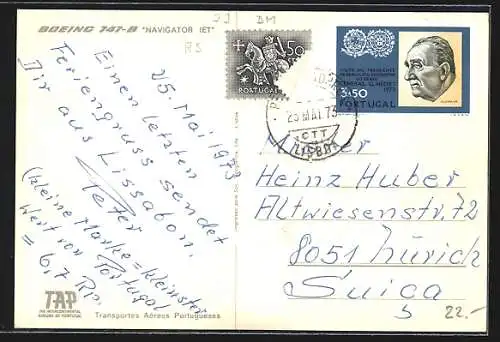 BOEING 747-B "NAVIGATOR JET"
25. Mai 1973
Einen letzten
Feriengruss sendet
Dir aus Lissabon.
Peter
(kleine Marke = kleinster
Wert von Portugal
= 6,7 Rp.
TAP
THE INTERCONTINENTAL
AIRLINE OF PORTUGAL
Transportes Aéreos Portugueses
50
PORTUGAL
3$50
PORTUGAL
25 MAI. 73
CTT
LISBOA
Heinz Huber
Altwiesenstr. 72
8051 Zürich
Suiça
22.-